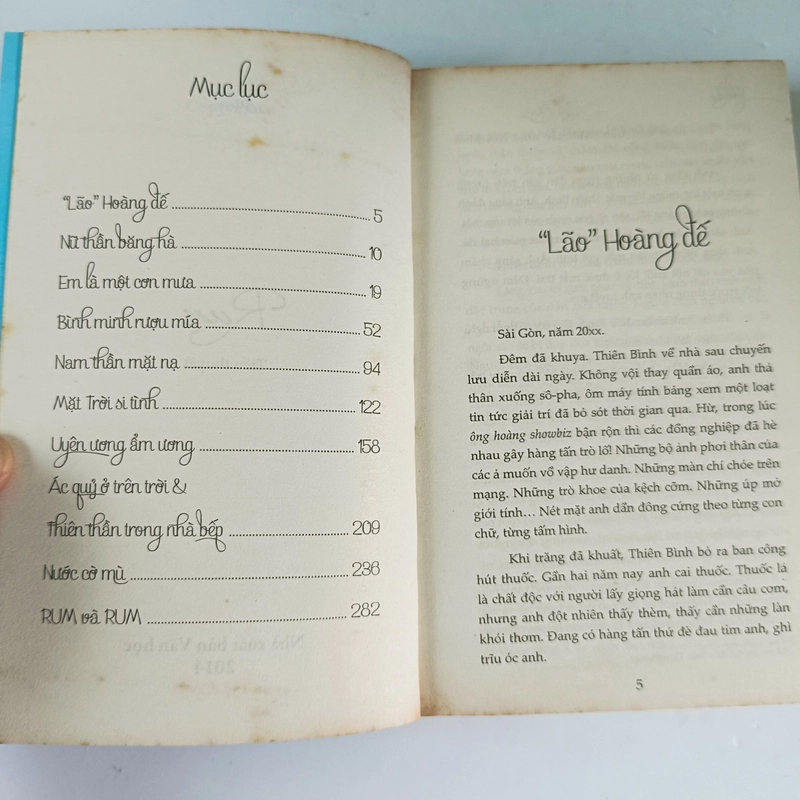 Mục lục
"Lão" Hoàng đế ........ 5
Nữ thần băng hà ........ 10
Em là một cơn mưa ........ 19
Bình minh rượu mía ........ 52
Nam thần mặt nạ ........ 94
Mặt Trời si tình ........ 122
Uyên ương ẩm ương ........ 158
Ác quỷ ở trên trời &
Thiên thần trong nhà bếp ........ 209
Nước cờ mù ........ 236
RUM và RUM ........ 282
"Lão" Hoàng đế
Sài Gòn, năm 20xx.
Đêm đã khuya. Thiên Bình về nhà sau chuyến
lưu diễn dài ngày. Không vội thay quần áo, anh thả
thân xuống sô-pha, ôm máy tính bảng xem một loạt
tin tức giải trí đã bỏ sót thời gian qua. Hừ, trong lúc
ông hoàng showbiz bận rộn thì các đồng nghiệp đã hè
nhau gây hàng tấn trò lố! Những bộ ảnh phơi thân của
các ả muốn vồ vập hư danh. Những màn chí chóe trên
mạng. Những trò khoe của kệch cỡm. Những úp mở
giới tính... Nét mặt anh dần đông cứng theo từng con
chữ, từng tấm hình.
Khi trăng đã khuất, Thiên Bình bỏ ra ban công
hút thuốc. Gần hai năm nay anh cai thuốc. Thuốc lá
là chất độc với người lấy giọng hát làm cần câu cơm,
nhưng anh đột nhiên thấy thèm, thấy cần những làn
khói thơm. Đang có hàng tấn thứ đè đau tim anh, ghì
trĩu óc anh.
5